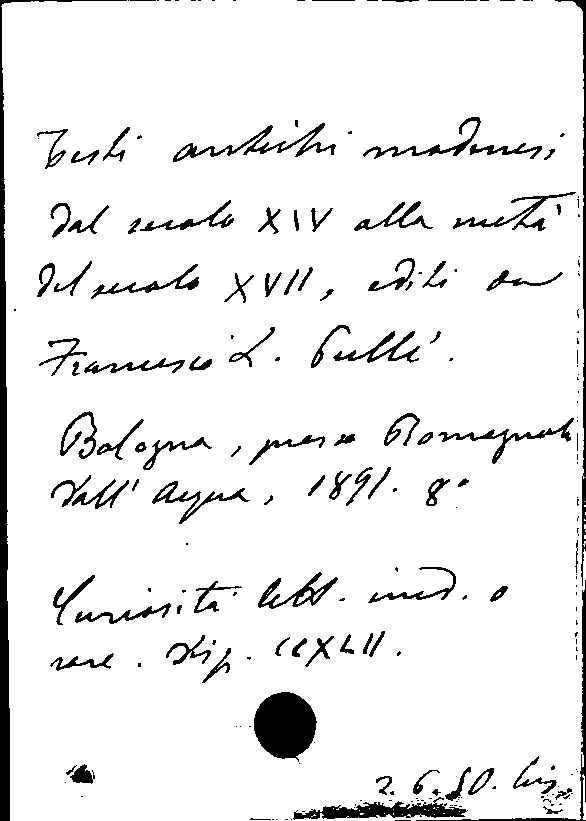 Testi antichi modenesi
dal secolo XIV alla metà
del secolo XVII, editi da
Francesco L. Pullé.
Bologna, presso Romagnoli
dall'Acqua, 1891. 8°
Curiosità lett. ined. o
rare. Disp. CCXLII.
2. 6. 50.